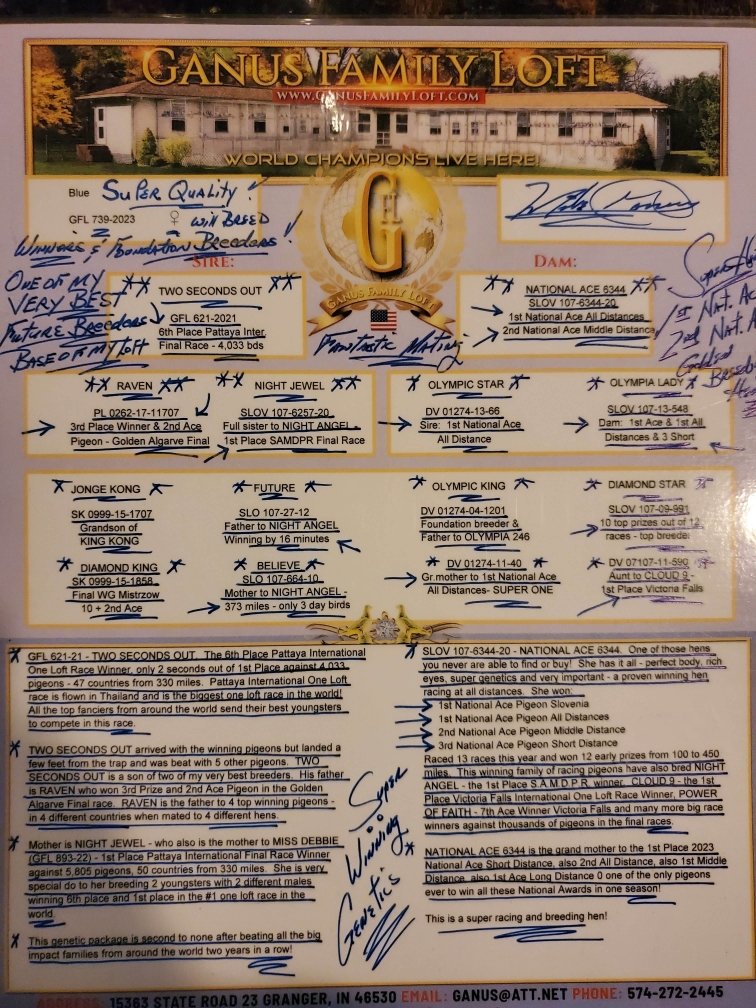 GANUS FAMILY LOFT
WWW.GANUSFAMILYLOFT.COM
WORLD CHAMPIONS LIVE HERE!
Blue SUPER QUALITY!
GFL 739-2023 ♀ WILL BREED
WINNERS & FOUNDATION BREEDERS!
GFL
GANUS FAMILY LOFT
SIRE:
ONE OF MY
VERY BEST
FUTURE BREEDERS
BASE OF MY LOFT
TWO SECONDS OUT
GFL 621-2021
6th Place Pattaya Inter.
Final Race - 4,033 bds
FANTASTIC MATING
DAM:
NATIONAL ACE 6344
SLOV 107-6344-20
1st National Ace All Distances
2nd National Ace Middle Distance
SUPER
1st NAT. AC
2nd NAT. A
RAVEN
PL 0262-17-11707
3rd Place Winner & 2nd Ace
Pigeon - Golden Algarve Final
NIGHT JEWEL
SLOV 107-6257-20
Full sister to NIGHT ANGEL
1st Place SAMDPR Final Race
OLYMPIC STAR
DV 01274-13-66
Sire: 1st National Ace
All Distance
OLYMPIA LADY
SLOV 107-13-548
Dam: 1st Ace & 1st All
Distances & 3 Short
JONGE KONG
SK 0999-15-1707
Grandson of
KING KONG
FUTURE
SLO 107-27-12
Father to NIGHT ANGEL
Winning by 16 minutes
OLYMPIC KING
DV 01274-04-1201
Foundation breeder &
Father to OLYMPIA 246
DIAMOND STAR
SLOV 107-09-991
10 top prizes out of 12
races - top breeder
DIAMOND KING
SK 0999-15-1858
Final WG Mistrzow
10 + 2nd Ace
BELIEVE
SLO 107-664-10
Mother to NIGHT ANGEL -
373 miles - only 3 day birds
DV 01274-11-40
Gr.mother to 1st National Ace
All Distances- SUPER ONE
DV 07107-11-590
Aunt to CLOUD 9 -
1st Place Victoria Falls
GFL 621-21 - TWO SECONDS OUT. The 6th Place Pattaya International
One Loft Race Winner, only 2 seconds out of 1st Place against 4,033
pigeons - 47 countries from 330 miles. Pattaya International One Loft
race is flown in Thailand and is the biggest one loft race in the world!
All the top fanciers from around the world send their best youngsters
to compete in this race.
TWO SECONDS OUT arrived with the winning pigeons but landed a
few feet from the trap and was beat with 5 other pigeons. TWO
SECONDS OUT is a son of two of my very best breeders. His father
is RAVEN who won 3rd Prize and 2nd Ace Pigeon in the Golden
Algarve Final race. RAVEN is the father to 4 top winning pigeons -
in 4 different countries when mated to 4 different hens.
Mother is NIGHT JEWEL - who also is the mother to MISS DEBBIE
(GFL 893-22) - 1st Place Pattaya International Final Race Winner
against 5,805 pigeons, 50 countries from 330 miles. She is very
special do to her breeding 2 youngsters with 2 different males
winning 6th place and 1st place in the #1 one loft race in the
world.
This genetic package is second to none after beating all the big
impact families from around the world two years in a row!
SUPER
WINNING
GENETICS
SLOV 107-6344-20 - NATIONAL ACE 6344. One of those hens
you never are able to find or buy! She has it all - perfect body, rich
eyes, super genetics and very important - a proven winning hen
racing at all distances. She won:
1st National Ace Pigeon Slovenia
1st National Ace Pigeon All Distances
2nd National Ace Pigeon Middle Distance
3rd National Ace Pigeon Short Distance
Raced 13 races this year and won 12 early prizes from 100 to 450
miles. This winning family of racing pigeons have also bred NIGHT
ANGEL - the 1st Place S.A.M.D.P.R. winner, CLOUD 9 - the 1st
Place Victoria Falls International One Loft Race Winner, POWER
OF FAITH - 7th Ace Winner Victoria Falls and many more big race
winners against thousands of pigeons in the final races.
NATIONAL ACE 6344 is the grand mother to the 1st Place 2023
National Ace Short Distance, also 2nd All Distance, also 1st Middle
Distance, also 1st Ace Long Distance 0 one of the only pigeons
ever to win all these National Awards in one season!
This is a super racing and breeding hen!
ADDRESS: 15363 STATE ROAD 23 GRANGER, IN 46530 EMAIL: GANUS@ATT.NET PHONE: 574-272-2445